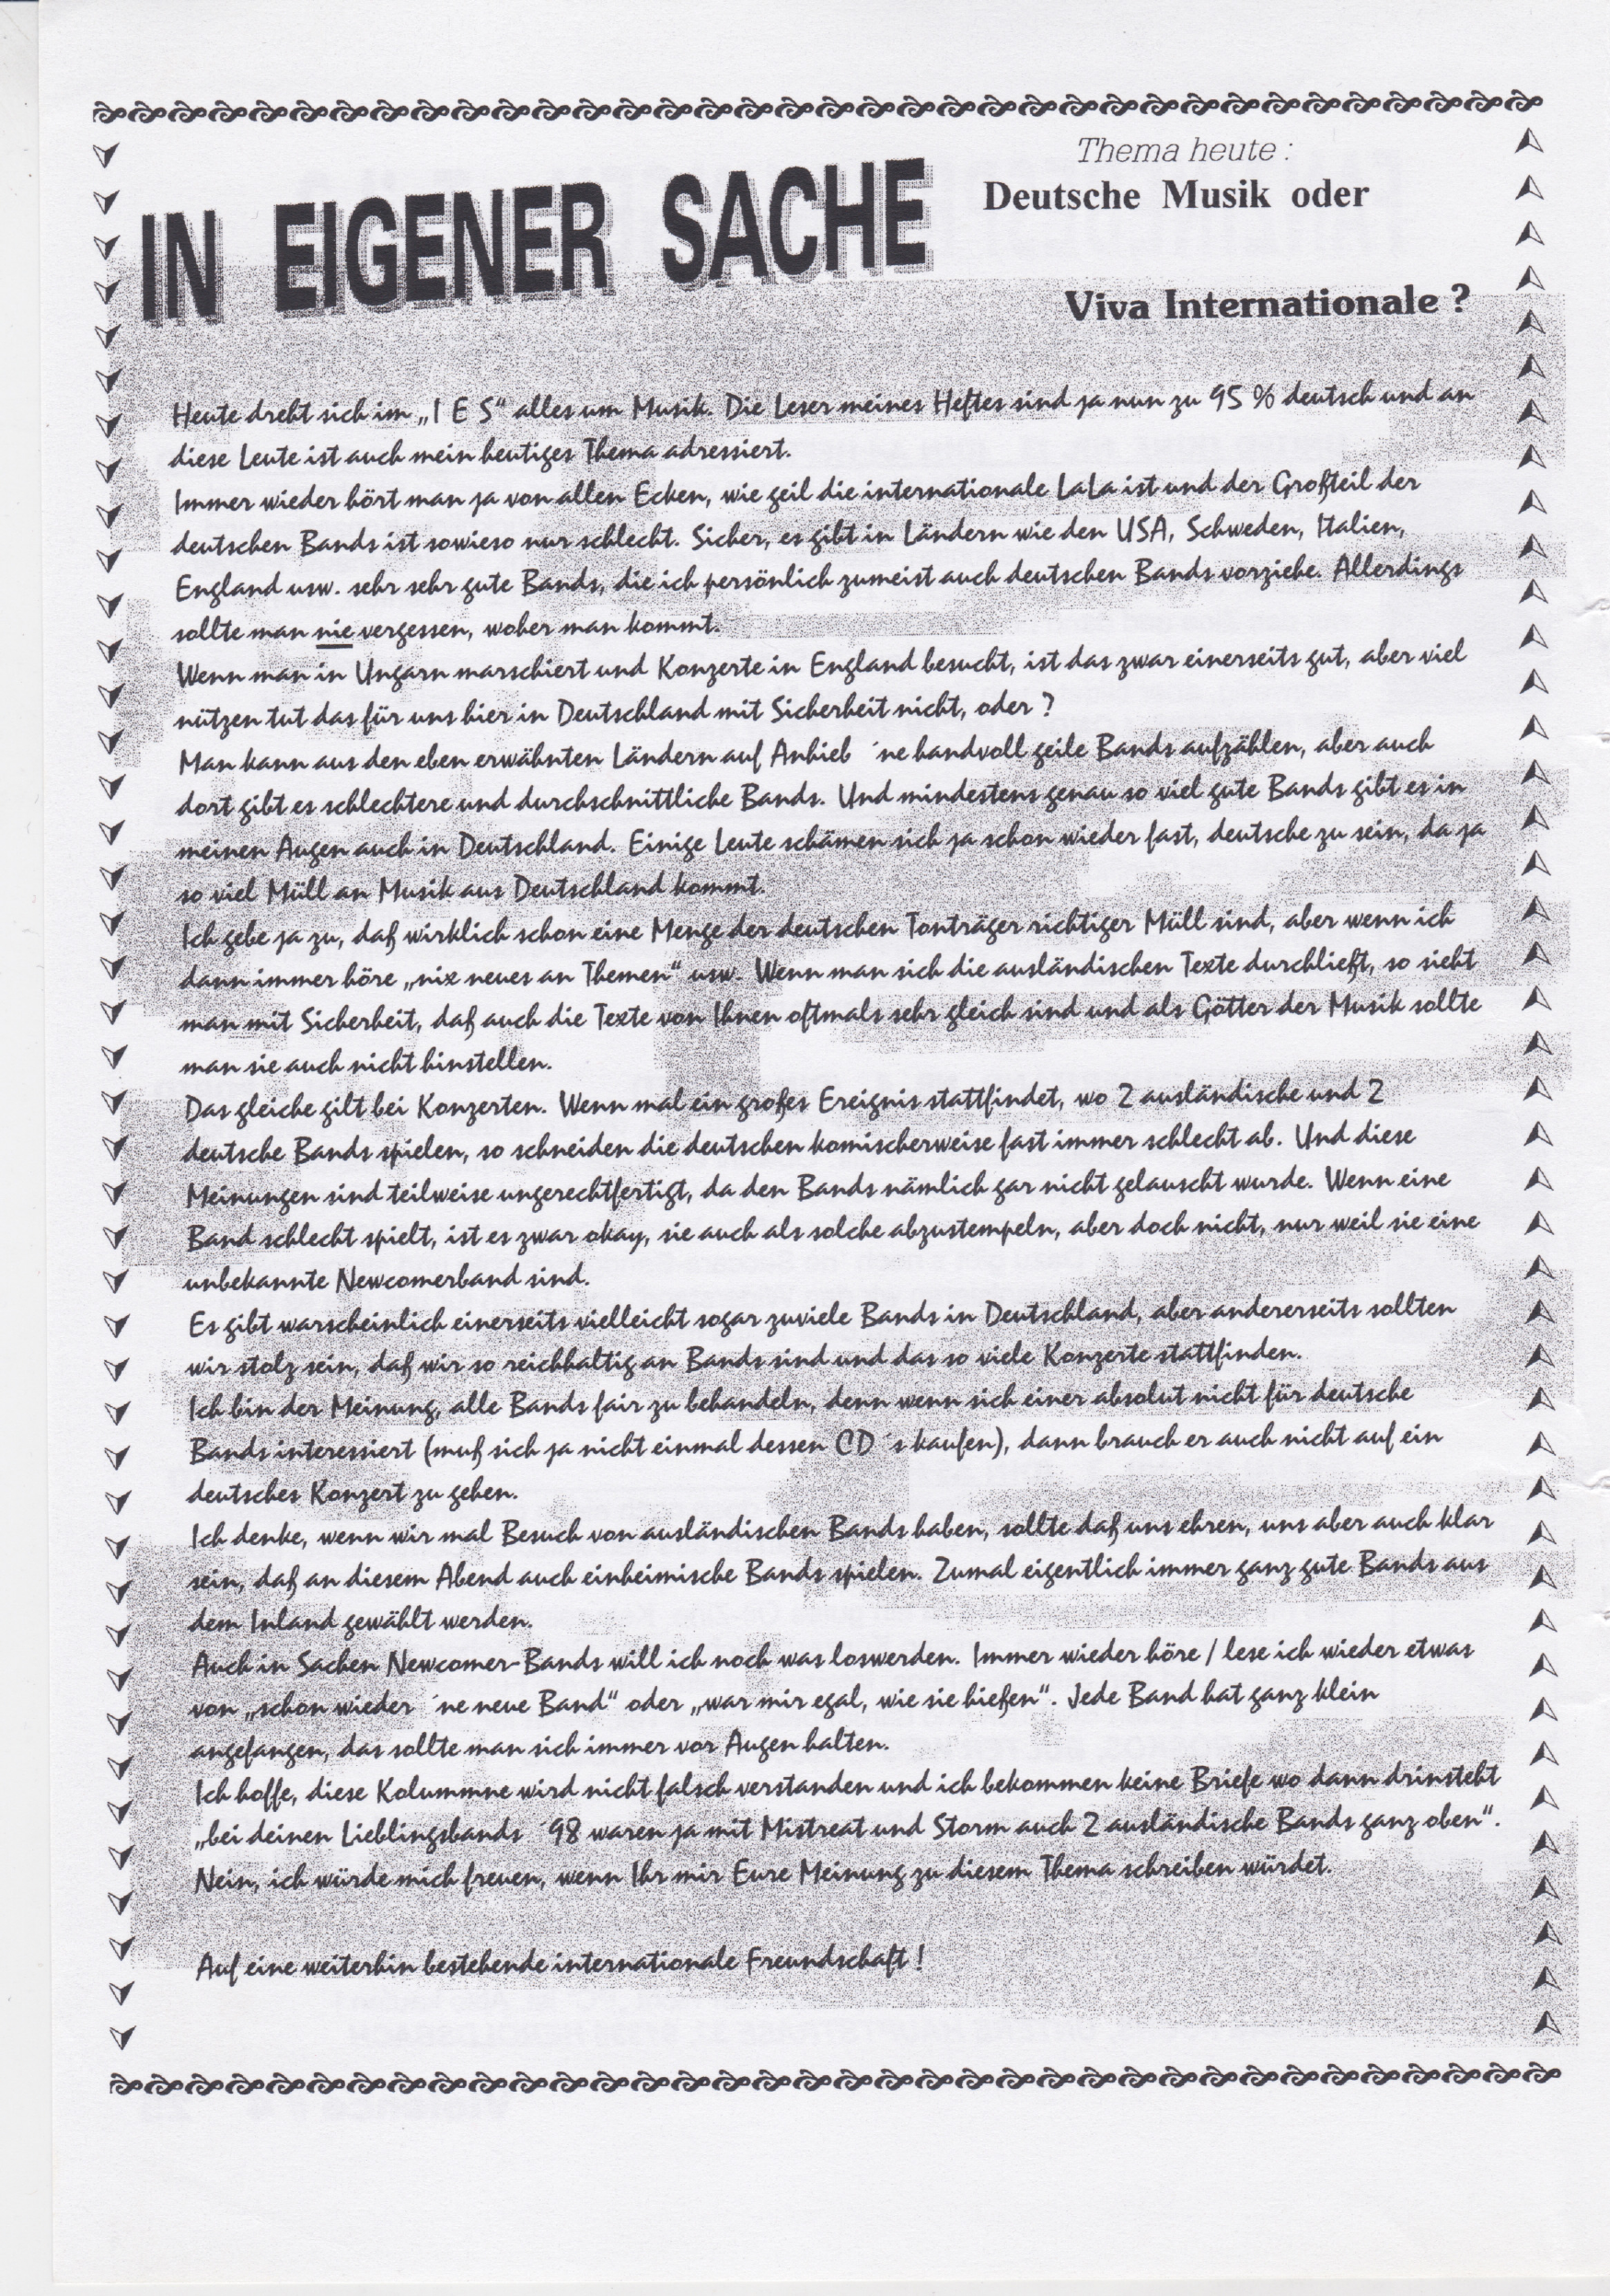 Thema heute :
IN EIGENER SACHE
Deutsche Musik oder
Viva Internationale ?
Heute dreht sich im „I E S“ alles um Musik. Die Leser meines Heftes sind ja nun zu 95 % deutsch und an
diese Leute ist auch mein heutiges Thema adressiert.
Immer wieder hört man ja von allen Ecken, wie geil die internationale LaLa ist und der Großteil der
deutschen Bands ist sowieso nur schlecht. Sicher, es gibt in Ländern wie den USA, Schweden, Italien,
England usw. sehr sehr gute Bands, die ich persönlich zumeist auch deutschen Bands vorziehe. Allerdings
sollte man nie vergessen, woher man kommt.
Wenn man in Ungarn marschiert und Konzerte in England besucht, ist das zwar einerseits gut, aber viel
nützen tut das für uns hier in Deutschland mit Sicherheit nicht, oder ?
Man kann aus den eben erwähnten Ländern auf Anhieb ´ne handvoll geile Bands aufzählen, aber auch
dort gibt es schlechtere und durchschnittliche Bands. Und mindestens genau so viel gute Bands gibt es in
meinen Augen auch in Deutschland. Einige Leute schämen sich ja schon wieder fast, deutsche zu sein, da ja
so viel Müll an Musik aus Deutschland kommt.
Ich gebe ja zu, daß wirklich schon eine Menge der deutschen Tonträger richtiger Müll sind, aber wenn ich
dann immer höre „nix neues an Themen“ usw. Wenn man sich die ausländischen Texte durchließt, so sieht
man mit Sicherheit, daß auch die Texte von Ihnen oftmals sehr gleich sind und als Götter der Musik sollte
man sie auch nicht hinstellen.
Das gleiche gilt bei Konzerten. Wenn mal ein großes Ereignis stattfindet, wo 2 ausländische und 2
deutsche Bands spielen, so schneiden die deutschen komischerweise fast immer schlecht ab. Und diese
Meinungen sind teilweise ungerechtfertigt, da den Bands nämlich gar nicht gelauscht wurde. Wenn eine
Band schlecht spielt, ist es zwar okay, sie auch als solche abzustempeln, aber doch nicht, nur weil sie eine
unbekannte Newcomerband sind.
Es gibt warscheinlich einerseits vielleicht sogar zuviele Bands in Deutschland, aber andererseits sollten
wir stolz sein, daß wir so reichhaltig an Bands sind und das so viele Konzerte stattfinden.
Ich bin der Meinung, alle Bands fair zu behandeln, denn wenn sich einer absolut nicht für deutsche
Bands interessiert (muß sich ja nicht einmal dessen CD´s kaufen), dann brauch er auch nicht auf ein
deutsches Konzert zu gehen.
Ich denke, wenn wir mal Besuch von ausländischen Bands haben, sollte daß uns ehren, uns aber auch klar
sein, daß an diesem Abend auch einheimische Bands spielen. Zumal eigentlich immer ganz gute Bands aus
dem Inland gewählt werden.
Auch in Sachen Newcomer-Bands will ich noch was loswerden. Immer wieder höre / lese ich wieder etwas
von „schon wieder ´ne neue Band“ oder „war mir egal, wie sie hießen“. Jede Band hat ganz klein
angefangen, das sollte man sich immer vor Augen halten.
Ich hoffe, diese Kolummne wird nicht falsch verstanden und ich bekommen keine Briefe wo dann drinsteht
„bei deinen Lieblingsbands ´98 waren ja mit Mistreat und Storm auch 2 ausländische Bands ganz oben“.
Nein, ich würde mich freuen, wenn Ihr mir Eure Meinung zu diesem Thema schreiben würdet.
Auf eine weiterhin bestehende internationale Freundschaft !